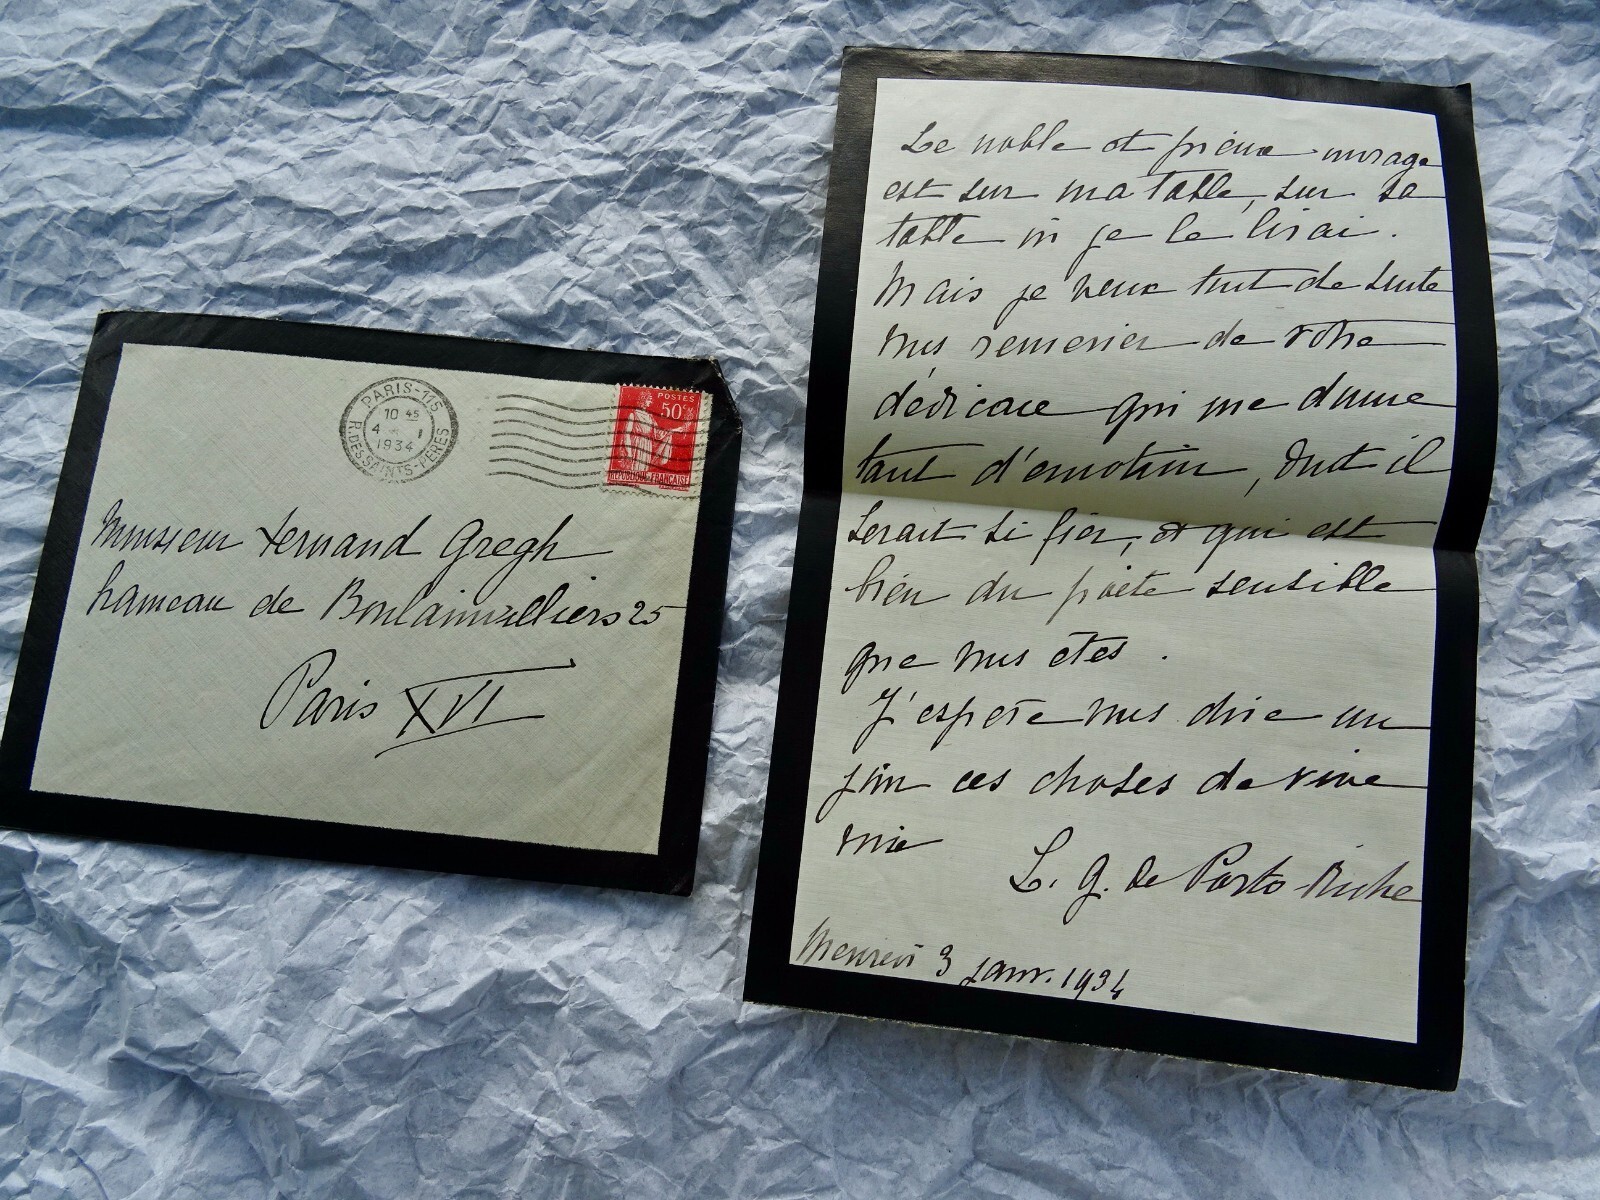 PARIS-115
10 45
4 - 1
1934
R. DES SAINTS-PERES
POSTES
50c
REPUBLIQUE FRANCAISE
Monsieur Fernand Gregh
hameau de Boulainvilliers 25
Paris XVI
Le noble et précieux ouvrage
est sur ma table, sur sa
table où je le lirai.
Mais je veux tout de suite
vous remercier de votre
dédicace qui me donne
tant d'émotion, dont il
serait si fier, et qui est
bien du poète sensible
que vous êtes.
J'espère vous dire un
jour ces choses de vive
voix
L. G. de Porto-Riche
Mercredi 3 janv. 1934